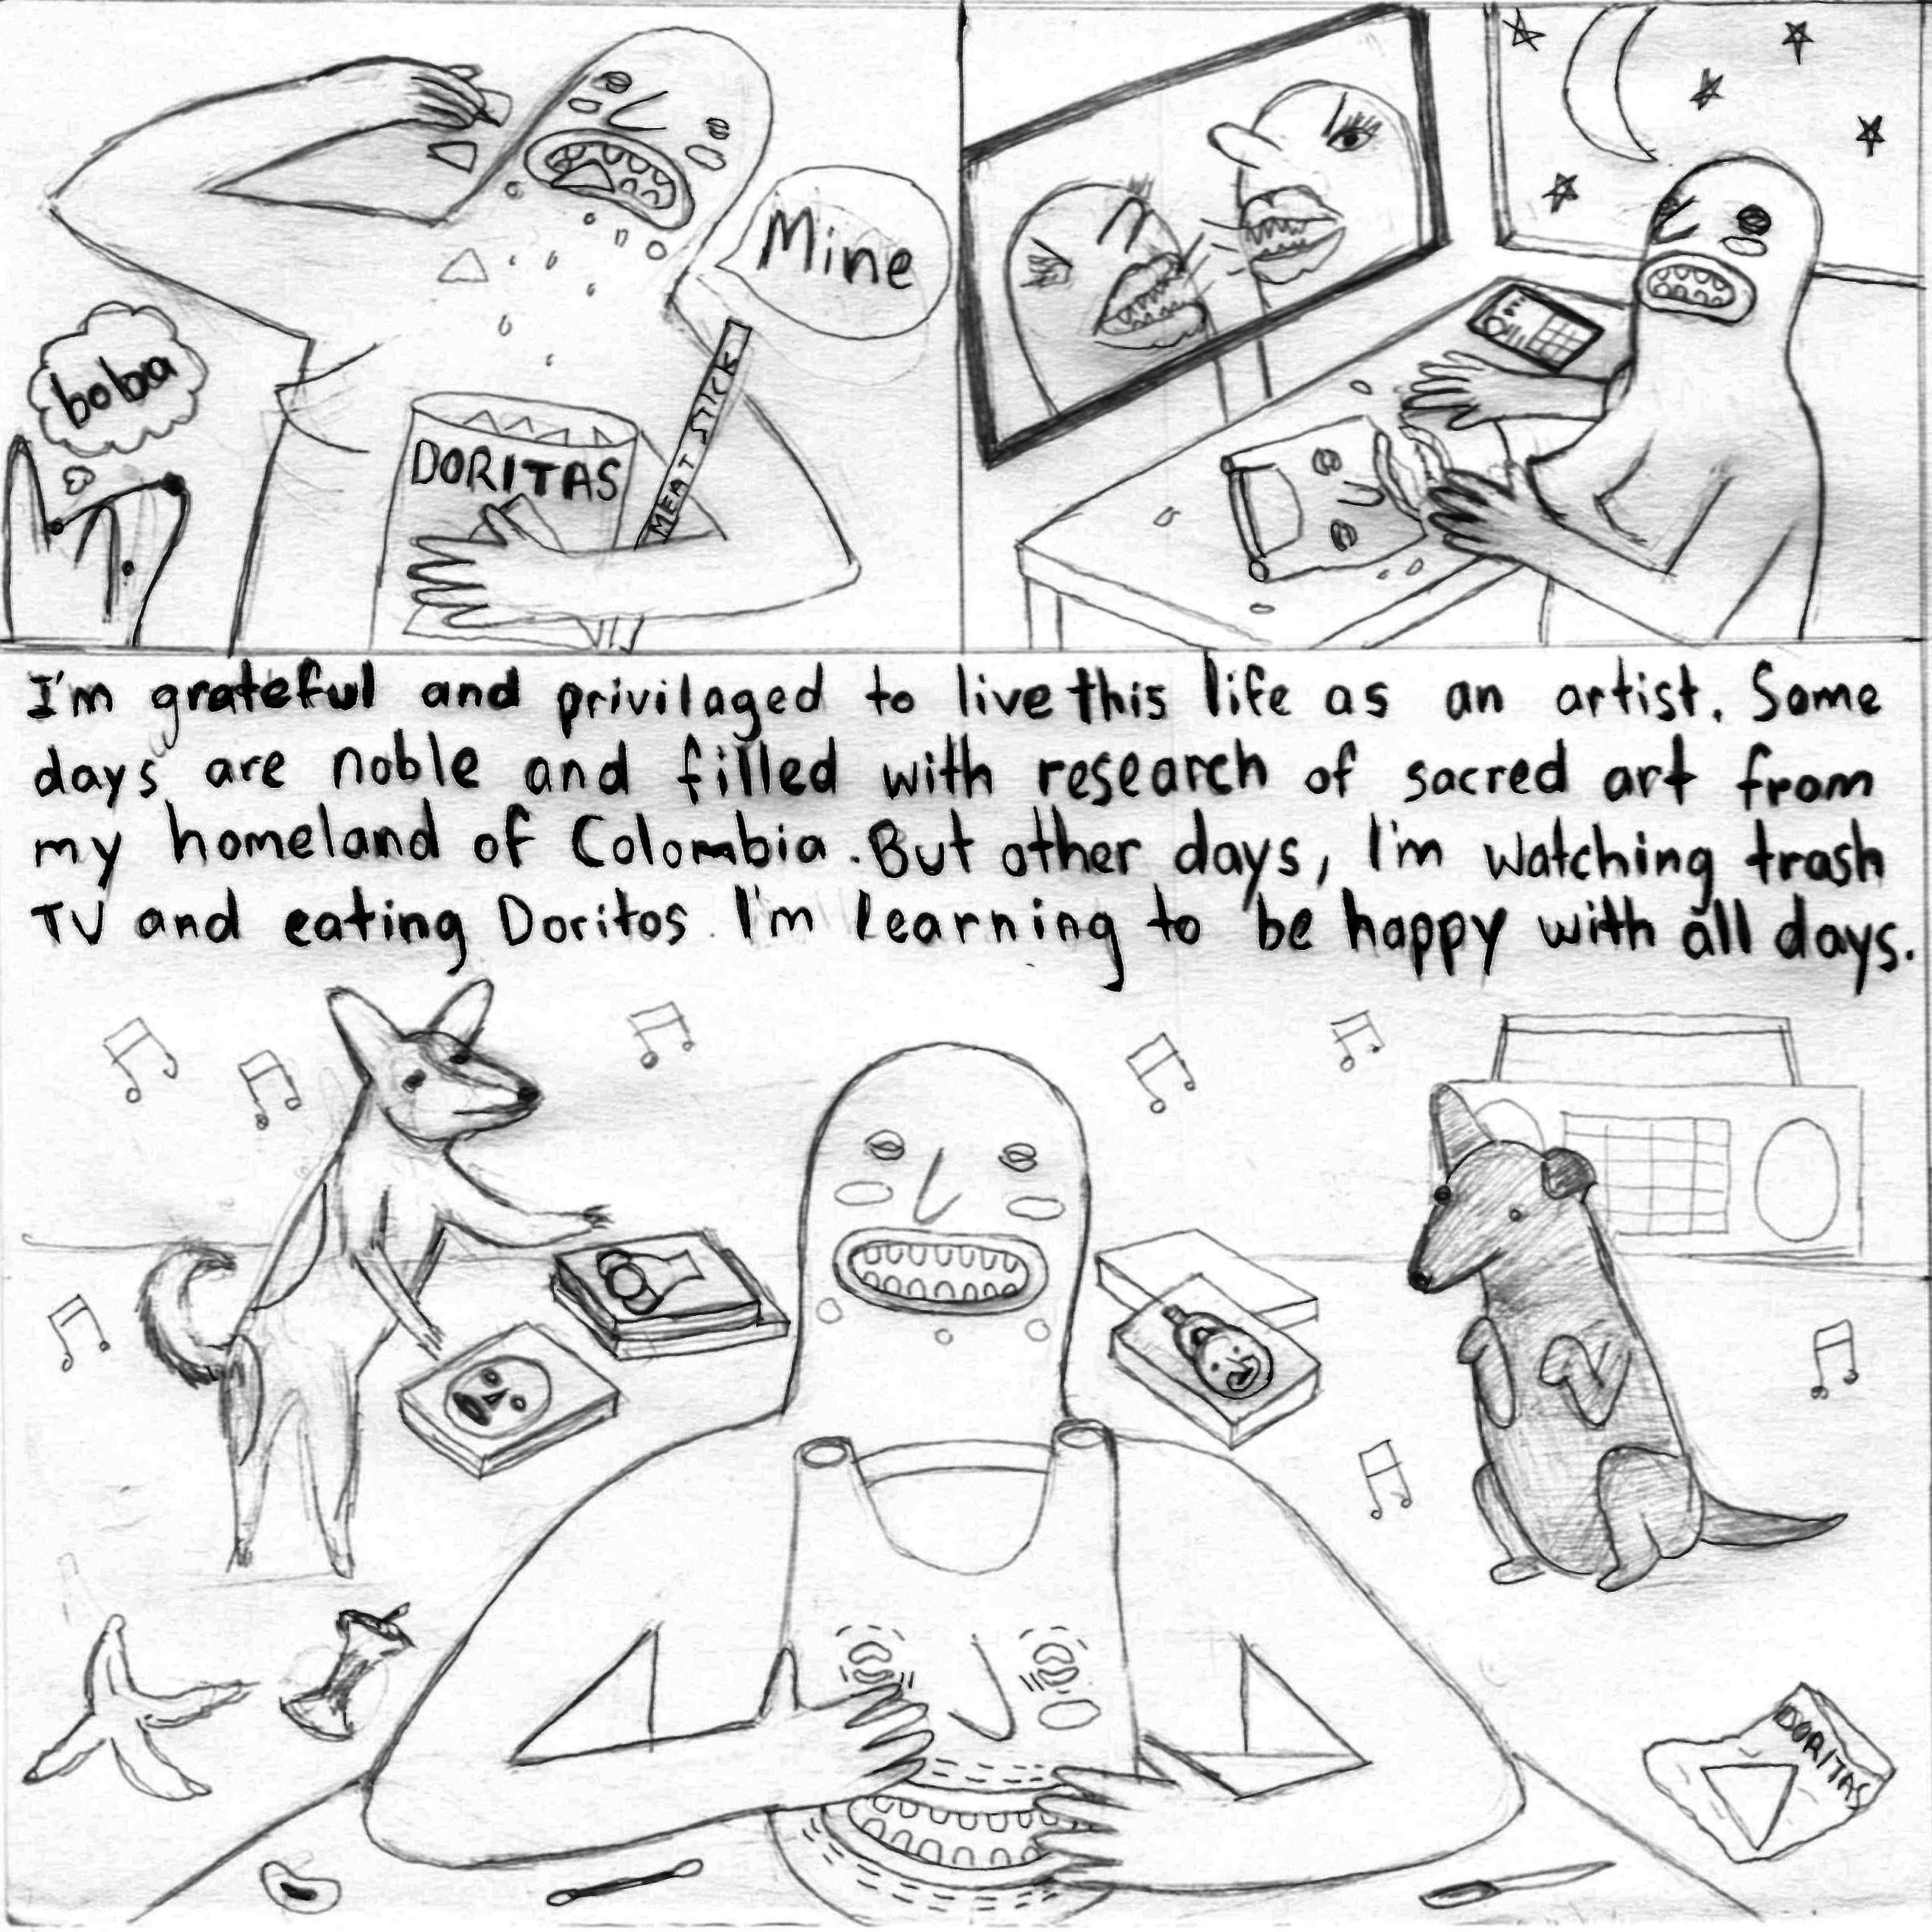 Mine
boba
DORITAS
MEAT STICK
I'm grateful and privilaged to live this life as an artist. Some
days are noble and filled with research of sacred art from
my homeland of Colombia. But other days, I'm watching trash
TV and eating Doritos. I'm learning to be happy with all days.
DORITAS